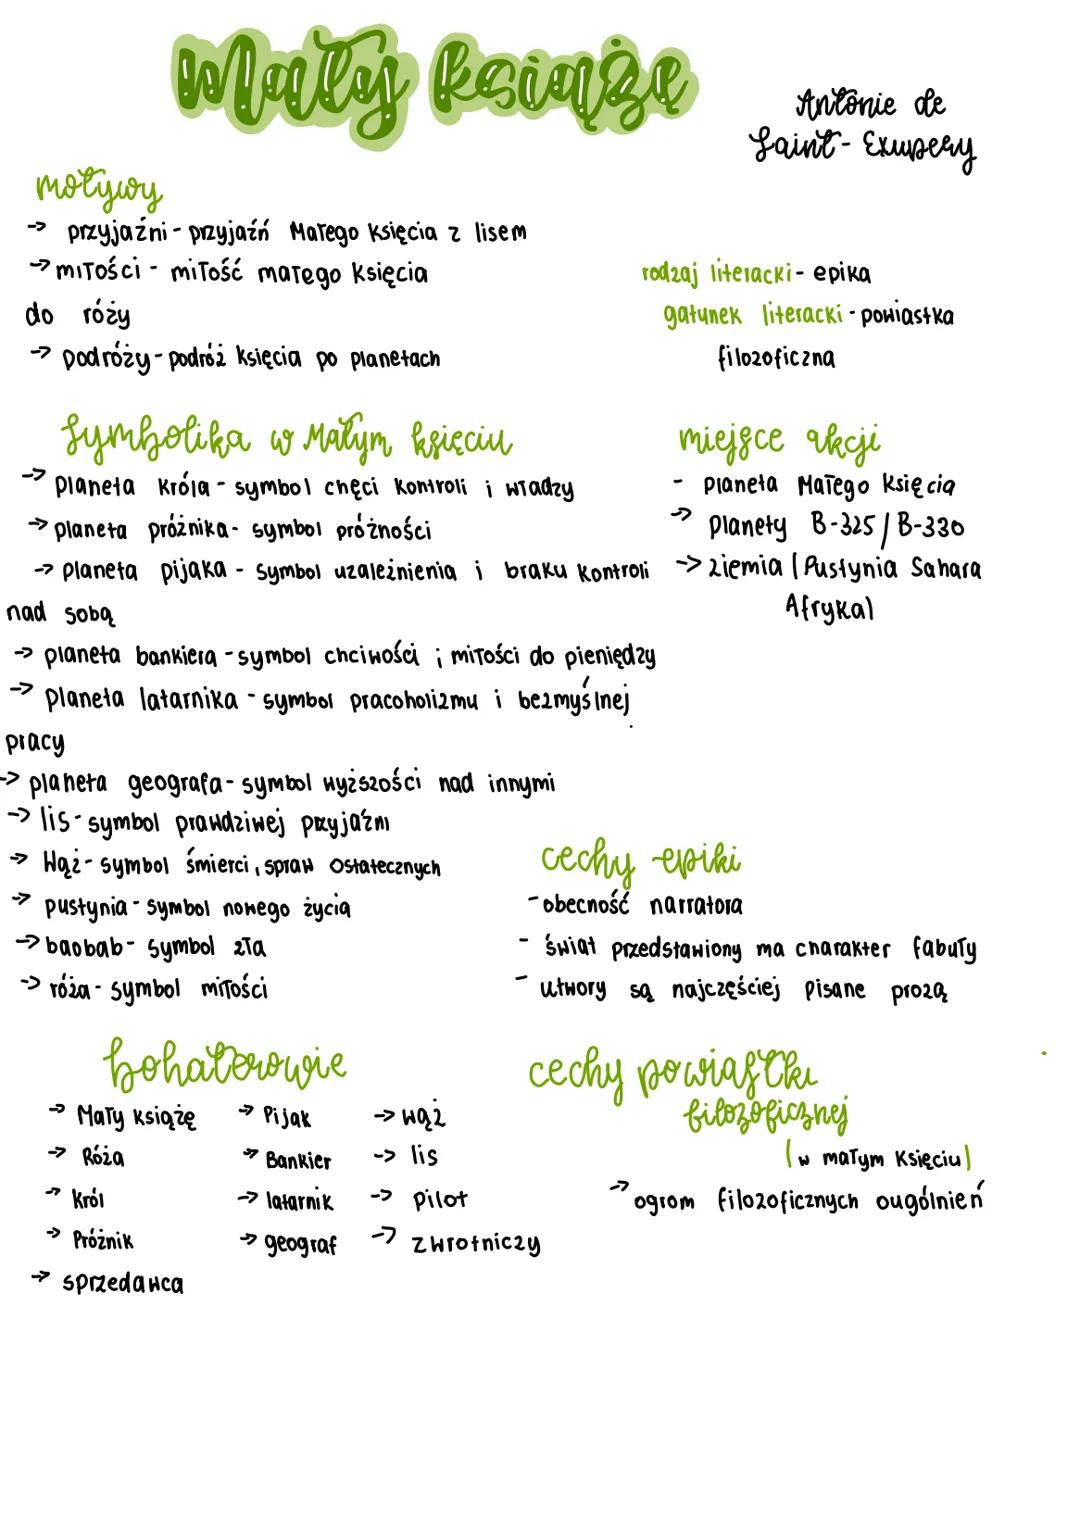 Mały książę
Antonie de
Saint-Exupery
motywy
→ przyjaźni - przyjaźń Małego Księcia z lisem
→ miłości - miłość małego Księcia
do róży
→ podróży - podróż księcia po planetach
rodzaj literacki - epika
gatunek literacki - powiastka
filozoficzna
Symbolika w Małym księciu
→ planeta króla - symbol chęci kontroli i władzy
→ planeta próżnika - symbol próżności
→ planeta pijaka - symbol uzależnienia i braku kontroli
nad sobą
→ planeta bankiera - symbol chciwości i miłości do pieniędzy
→ planeta latarnika - symbol pracoholizmu i bezmyślnej
pracy
→ planeta geografa - symbol wyższości nad innymi
→ lis - symbol prawdziwej przyjaźni
→ Wąż - symbol śmierci, spraw ostatecznych
→ pustynia - symbol nowego życia
→ baobab - symbol zła
→ róża - symbol miłości
miejsce akcji
- planeta Małego Księcia
→ planety B-325 / B-330
→ ziemia (Pustynia Sahara
Afryka)
cechy epiki
- obecność narratora
- świat przedstawiony ma charakter fabuły
- utwory są najczęściej pisane prozą
bohaterowie
→ Mały książę → Pijak → wąż
→ Róża → Bankier → lis
→ król → latarnik → pilot
→ Próżnik → geograf → zwrotniczy
→ sprzedawca
cechy powiastki
filozoficznej
(w małym Księciu)
→ ogrom filozoficznych ougólnień